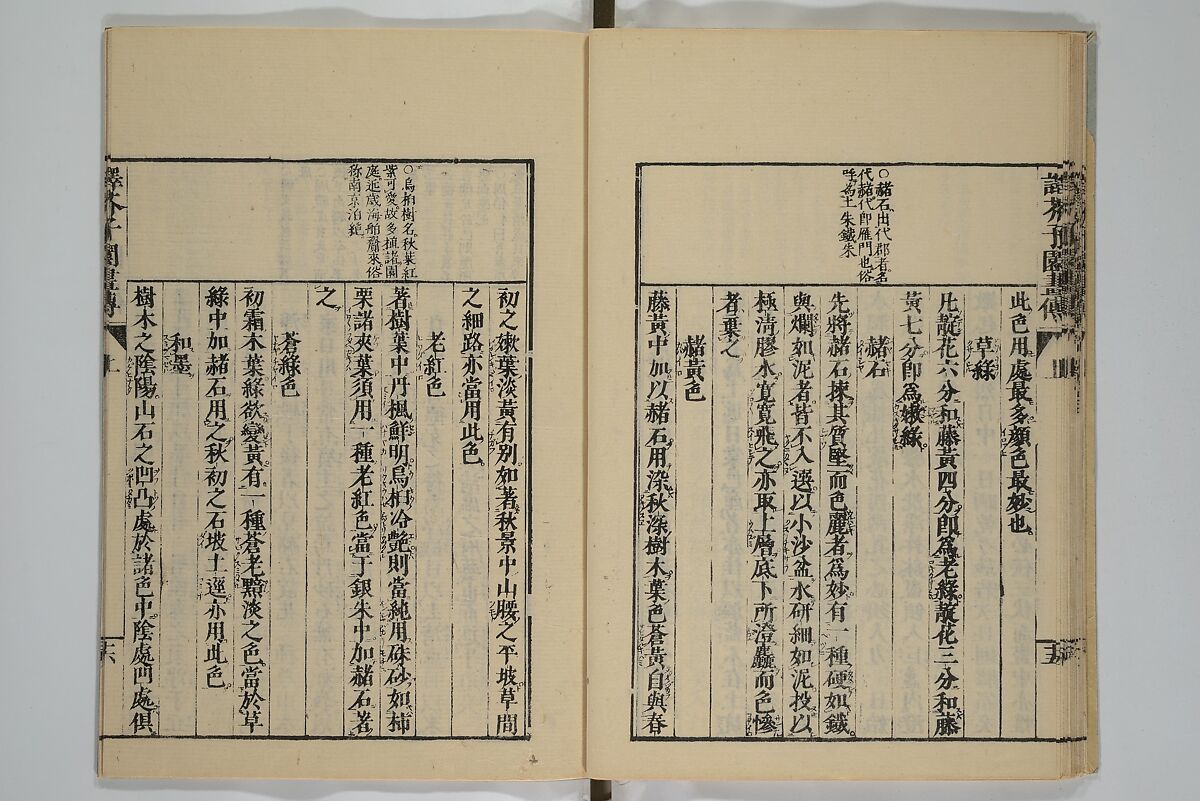 譯芥子園畫傳
上
十五
○赭石出代郡者名
代赭代即雁門也俗
呼為土朱鐵朱
此色用處最多顏色最妙也
草綠
凡靛花六分和藤黃四分即為老綠靛花三分和藤
黃七分即為嫩綠
赭石
先將赭石揀其質堅而色麗者為妙有一種硬如鐵
與爛如泥者皆不入選以小沙盆水研細如泥投以
極清膠水寬寬飛之亦取上層底下所澄麤而色慘
者棄之
赭黃色
藤黃中加以赭石用染秋深樹木葉色蒼黃自與春
○烏桕樹名秋葉紅
紫可愛故多植諸園
庭近歲海舶齎來俗
称南京泊
初之嫩葉淡黃有別如著秋景中山腰之平坡草間
之細路亦當用此色
老紅色
著樹葉中丹楓鮮明烏桕冷艷則當純用硃砂如柿
栗諸夾葉須用一種老紅色當于銀朱中加赭石著
之
蒼綠色
初霜木葉綠欲變黃有一種蒼老黯淡之色當於草
綠中加赭石用之秋初之石坡土逕亦用此色
和墨
樹木之陰陽山石之凹凸處於諸色中陰處凹處俱
譯芥子園畫傳
上
十六